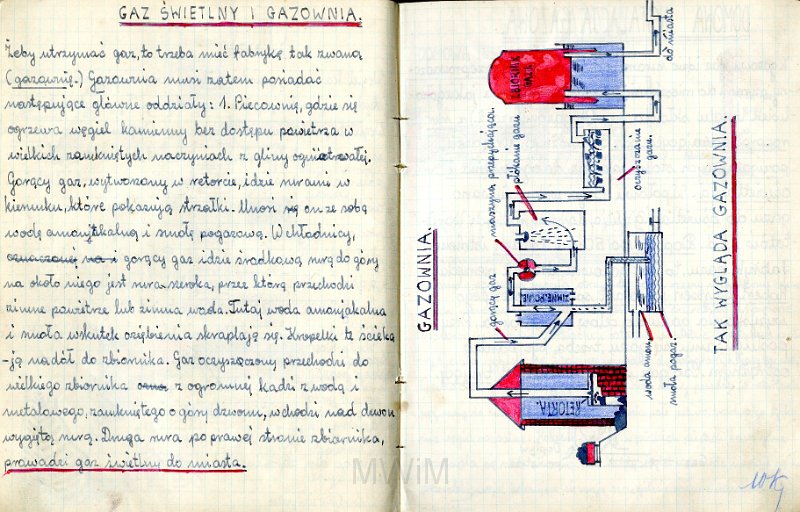 GAZ ŚWIETLNY I GAZOWNIA.
Żeby utrzymać gaz, to trzeba mieć fabrykę tak zwaną
(gazownię.) Gazownia musi zatem posiadać
następujące główne oddziały: 1. Piecownię, gdzie się
ogrzewa węgiel kamienny bez dostępu powietrza w
wielkich zamkniętych naczyniach z gliny ogniotrwałej.
Gorący gaz, wytworzony w retorcie, idzie rurami w
kierunku, które pokazują strzałki. Unosi się on ze sobą
wodę amonjakalną i smołę pogazową. W chłodnicy,
oznaczonej na i gorący gaz idzie środkową rurą do góry
na około niego jest rura szeroka, przez którą przechodzi
zimne powietrze lub zimna woda. Tutaj woda amonjakalna
i smoła wskutek oziębienia skraplają się. Kropelki te ścieka
-ją nadół do zbiornika. Gaz oczyszczony przechodzi do
wielkiego zbiornika z ogromnej kadzi z wodą i
metalowego, zamkniętego o góry dzwonu, wchodzi nad
wygiętą rurą. Druga rura po prawej stronie zbiornika,
prowadzi gaz świetlny do miasta.
GAZOWNIA.
RETORTA
gorący gaz
maszyna przepychająca.
płókanie gazu.
oczyszczanie
gazu.
do miasta
woda amon.
smoła pogaz.
TAK WYGLĄDA GAZOWNIA.
MWiM